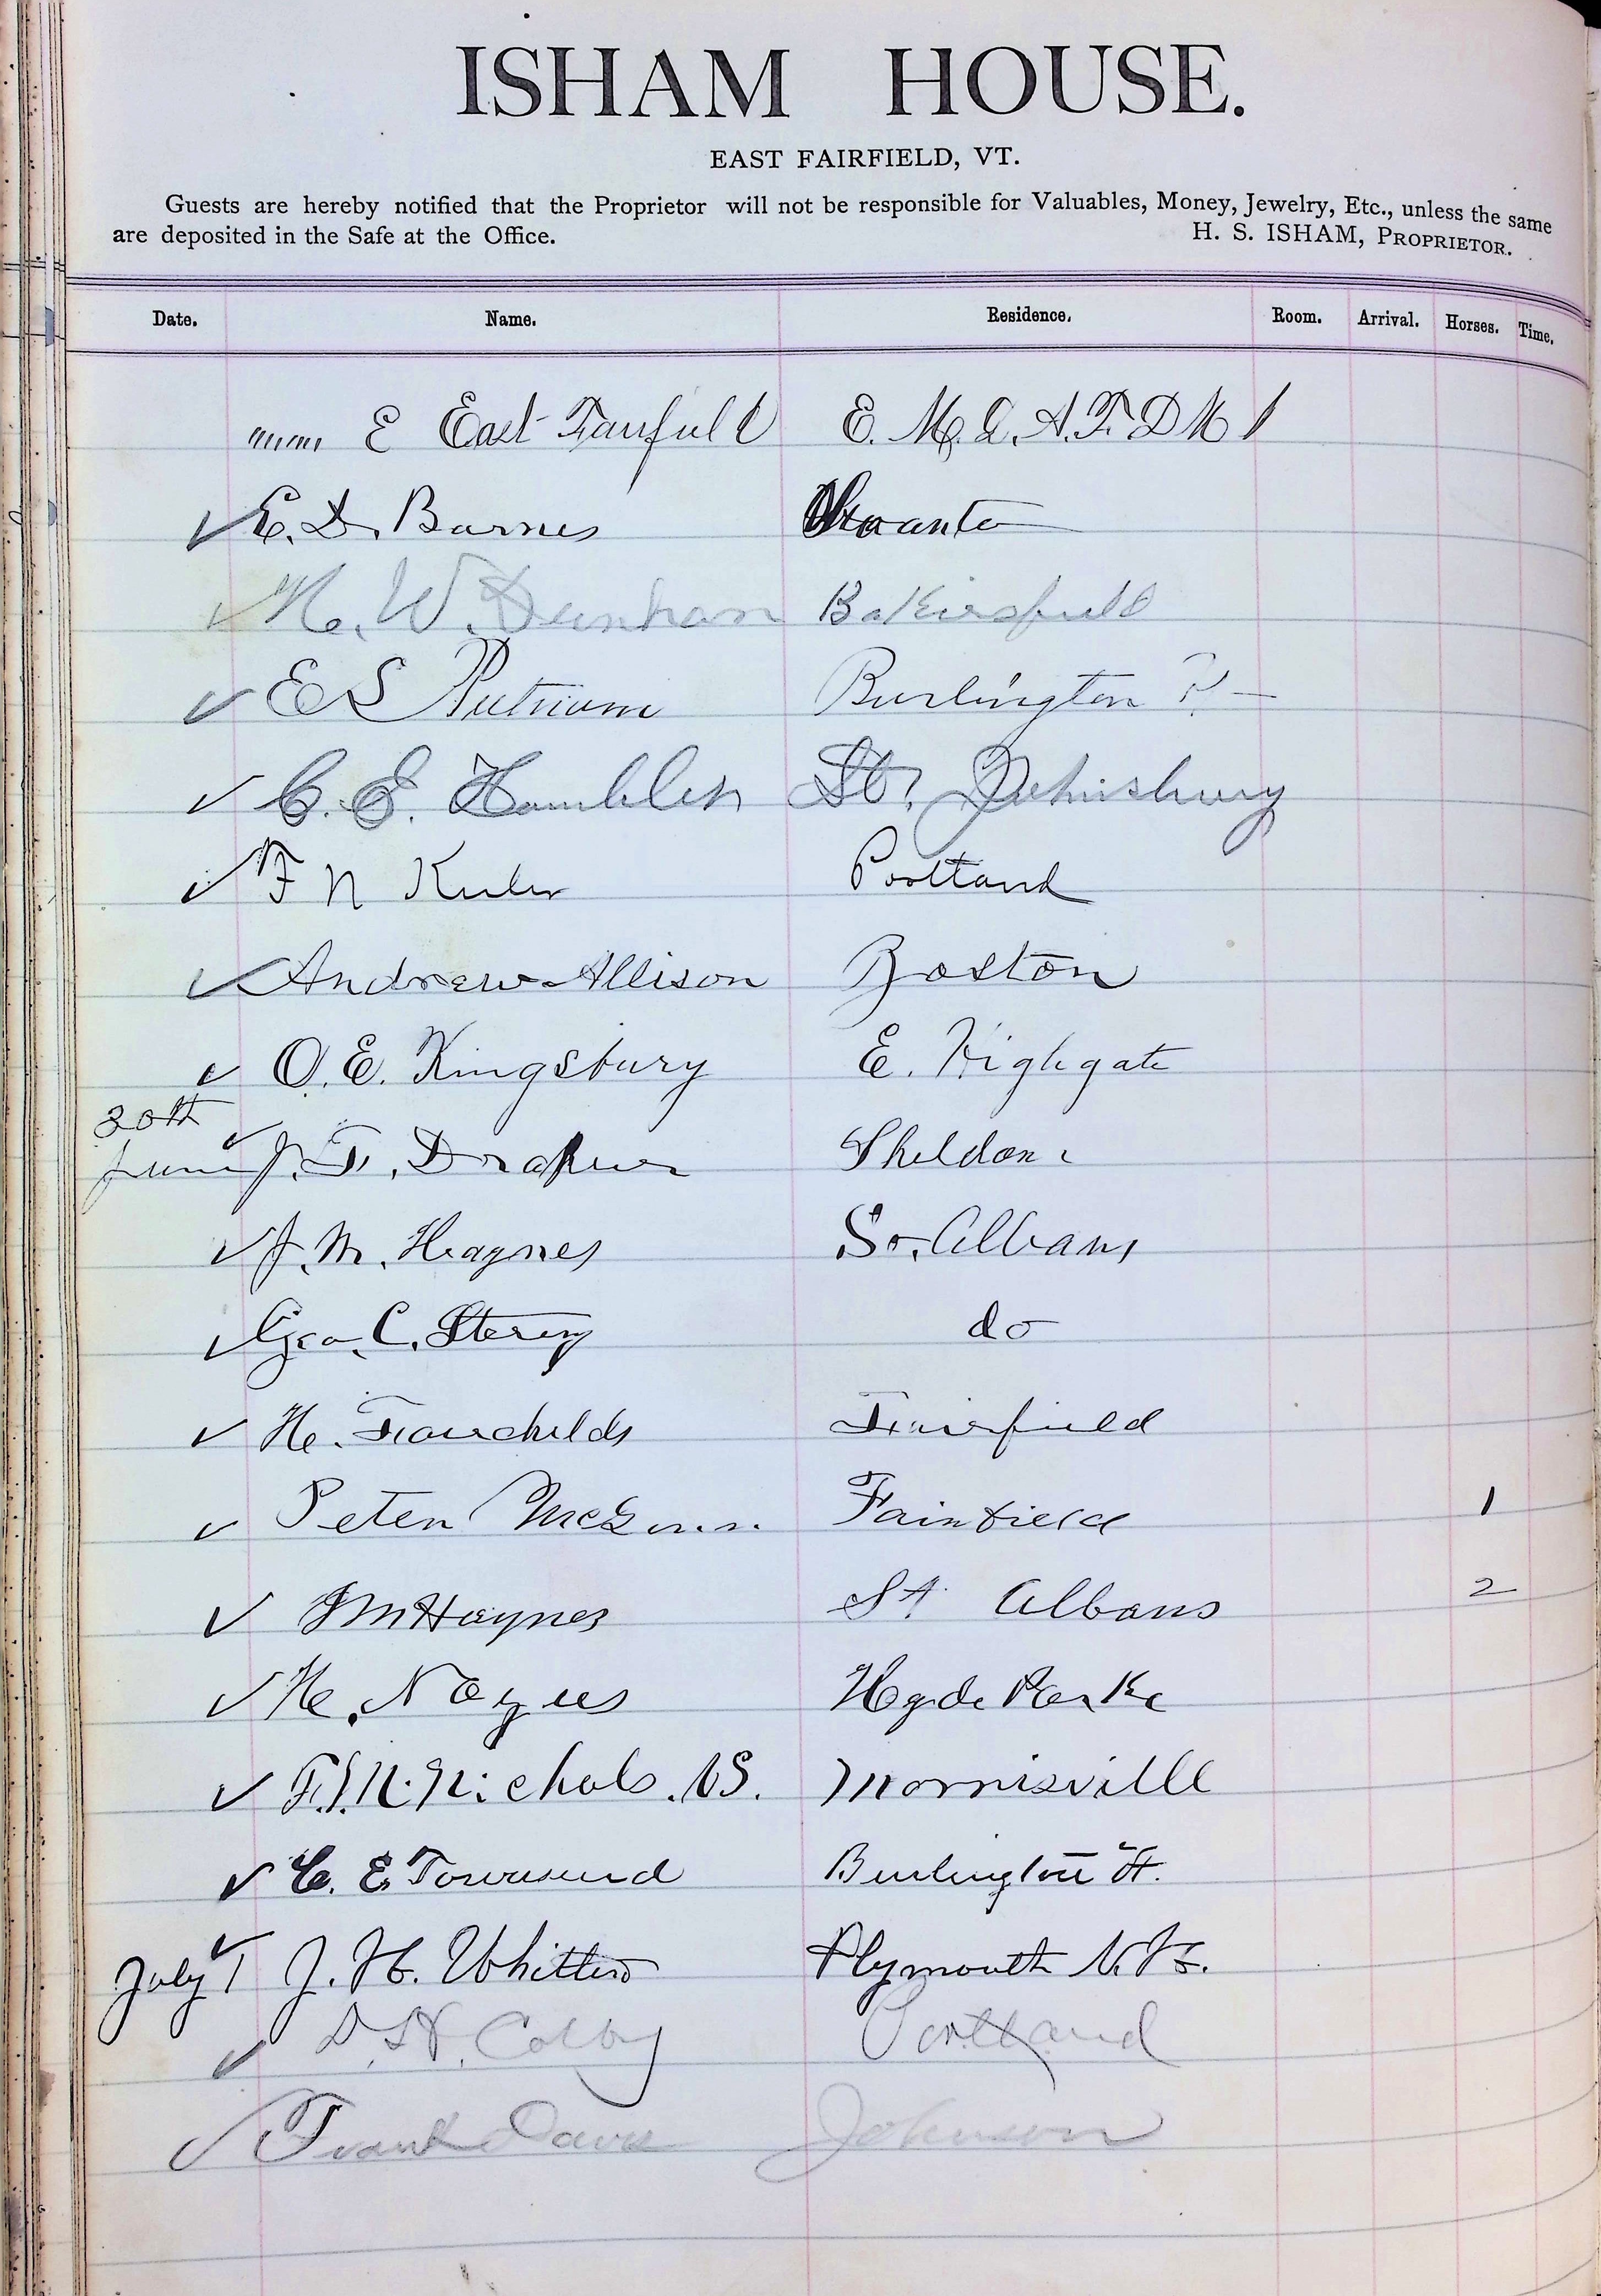 ISHAM HOUSE.
EAST FAIRFIELD, VT.
Guests are hereby notified that the Proprietor will not be responsible for Valuables, Money, Jewelry, Etc., unless the same
are deposited in the Safe at the Office. H. S. ISHAM, PROPRIETOR.
Date. Name. Residence. Room. Arrival. Horses. Time.
E East E. M.
✓ E. D. Barnes Swanton
✓ W. Bakersfield
✓ E S Putnam Burlington
✓ C. E. Hamblett St. Johnsbury
✓ F N Portland
✓ Andrew Allison Boston
✓ O. E. Kingsbury E. Highgate
30th
June ✓ J. F. Draper Sheldon
✓ J. M. Haynes St. Albans
✓ Geo. C. do
✓ H. Fairchilds Fairfield
✓ Peter Fairfield 1
✓ J M Haynes St Albans 2
✓ H. Noyes Hyde Parke
✓ Nichols Morrisville
✓ C. E. Townsend Burlington Vt.
July 1 ✓ J. H. Whitten Plymouth N. H.
✓ D. H. Colby Portland
✓ Frank Davis Johnson